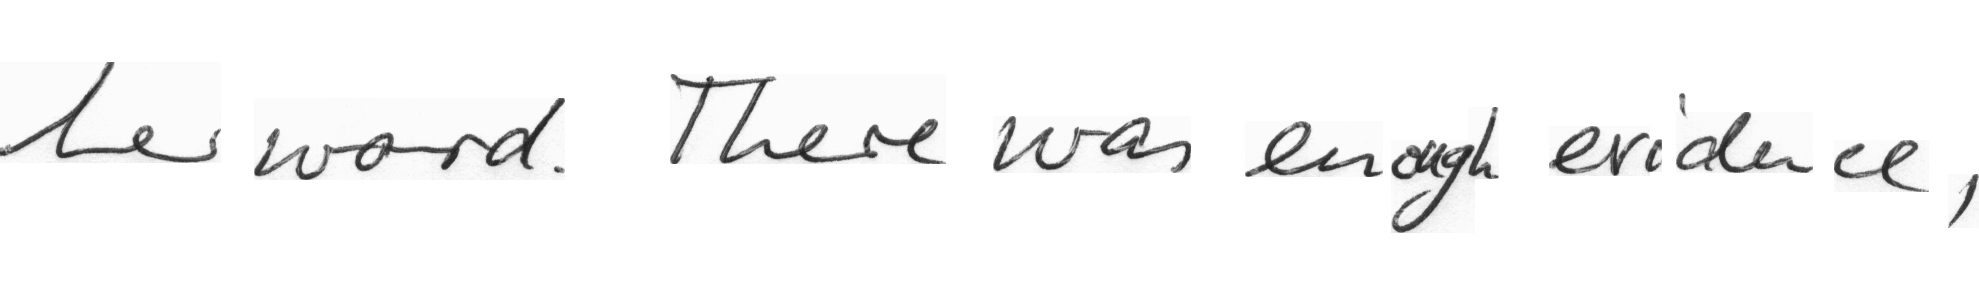 her word. There was enough evidence,